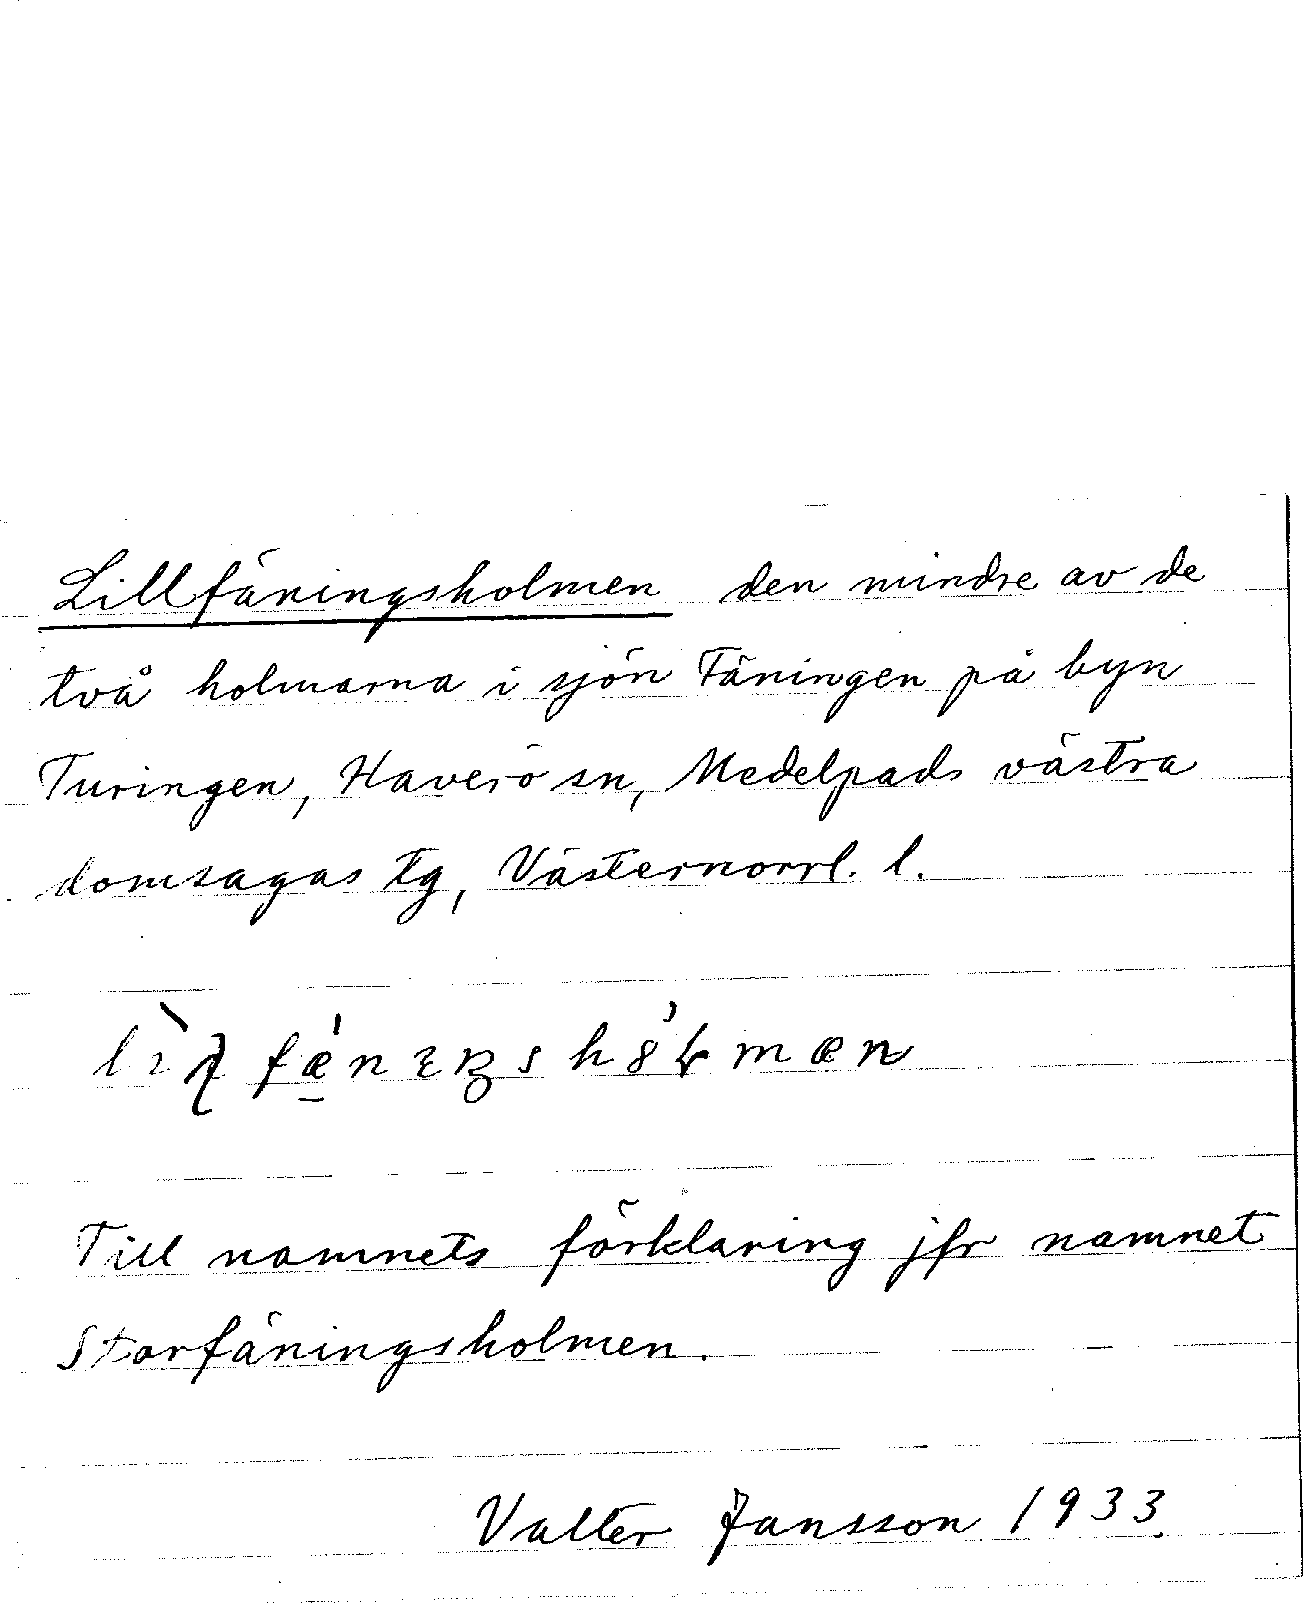 Lillfäningsholmen den mindre av de
två holmarna i sjön Fäningen på byn
Turingen, Haverö sn, Medelpads västra
domsagas tg, Västernorrl. l.
Till namnets förklaring jfr namnet
Storfäningsholmen.
Valter Jansson 1933.